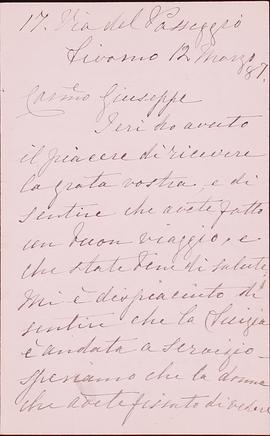 17. Via del Passeggio
Livorno 12 Marzo
87.
Carmo Giuseppe
Ieri ho avuto
il piacere di ricevere
la grata vostra, e di
sentire che avete fatto
un buon viaggio, e
che state bene di salute,
Mi è dispiaciuto di
sentire che la Luigia
è andata a servizio -
speriamo che la donna
che avete fissato di avere